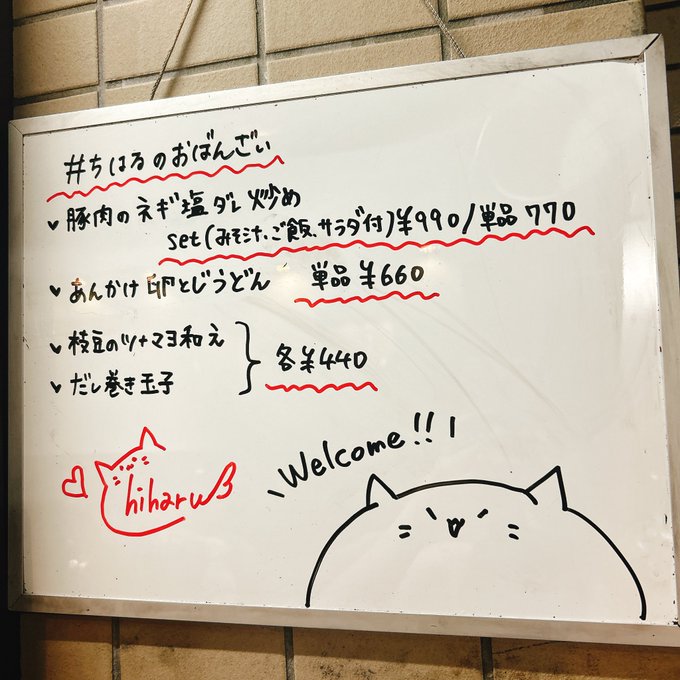 #ちはるのおばんざい
豚肉のネギ塩ダレ炒め
set(みそ汁、ご飯、サラダ付)¥990/単品770
あんかけ卵とじうどん 単品¥660
枝豆のツナマヨ和え
だし巻き玉子
各¥440
Chiharu
\Welcome!!/